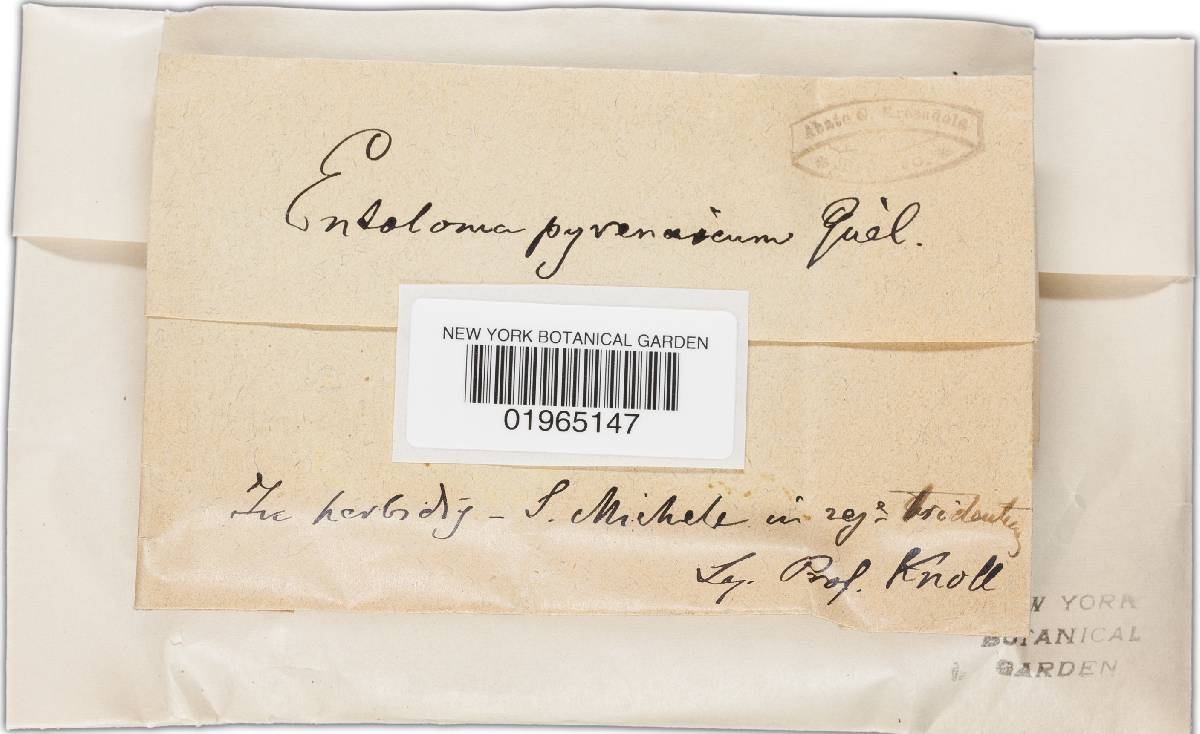 Abate G. Bresadola
Entoloma pyrenaicum Quèl.
NEW YORK BOTANICAL GARDEN
01965147
In herbidis - S. Michele in reg.e tridentin
Leg. Prof. Knoll
NEW YORK
BOTANICAL
GARDEN